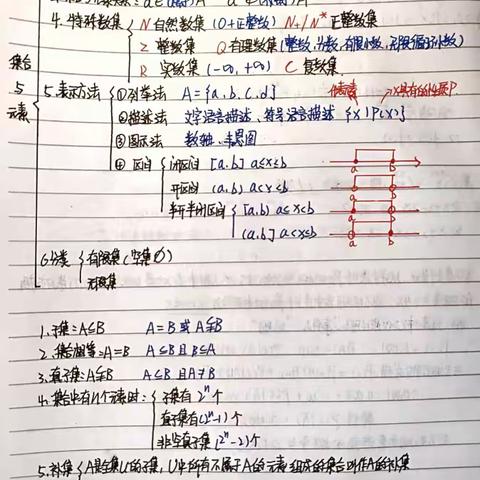 4. 特殊数集 N 自然数集 (0+正整数) N+/N* 正整数集
Z 整数集 Q 有理数集 (整数,分数,有限小数,无限循环小数)
R 实数集 (-∞,+∞) C 复数集
集合
与
元素
5. 表示方法 ①列举法 A={a,b,c,d} 代表元素 x具有的性质P
②描述法 文字语言描述、符号语言描述 {x|P(x)}
③图示法 数轴、韦恩图
④ 区间 闭区间 [a,b] a≤x≤b a b
开区间 (a,b) a<x<b a b
半开半闭区间 [a,b) a≤x<b a b
(a,b] a<x≤b a b
6. 分类 有限集 (空集∅)
无限集
1. 子集:A⊆B A=B 或 A⫋B
2. 集合相等:A=B A⊆B且B⊆A
3. 真子集:A⫋B A⊆B且A≠B
4. 集合中有n个元素时: 子集有 2ⁿ个
真子集有(2ⁿ-1)个
非空真子集(2ⁿ-2)个
5. 补集 A是全集U的子集,U中所有不属于A的元素组成的集合叫作A的补集